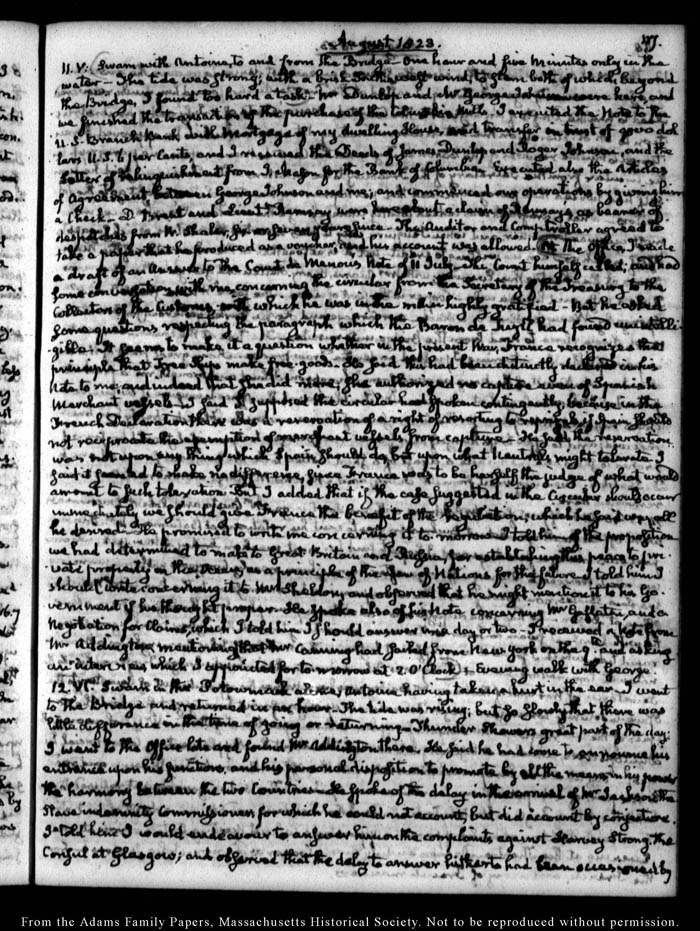 August 1823.
11. V. Swam with Antoine, to and from the Bridge. One hour and five Minutes only in the
water — The tide was strong; with a brisk Southwest wind, to stem both of which, beyond
the Bridge, I found too hard a task. Mr Dunlop and Mr George Johnson were here, and
we finished the transaction of the purchase of the Columbian Mills. I executed the Note to the
U.S. Branch Bank with Mortgage of my dwelling House, and transfer in trust of dol
lars U.S. 6 per Cents, and I received the Deeds of James Dunlop and Roger Johnson, and the
Letter of relinquishment from for the Bank of Columbia. Executed also the Articles
of Agreement between George Johnson and me; and commenced our operations by giving him
a check. D. Brent and Lieut. Ramsay were here about a claim of Ramsay's as bearer of
despatches from W. Shaler, since — The Auditor and Comptroller agreed to
take a paper that he produced as a voucher, and his account was allowed. At the Office I made
a draft of an Answer to the Count de Menou's Note of 11 July. The Count himself called; and had
some conversation with me concerning the circular from the Secretary of the Treasury to the
Collectors of the Customs, with which he was in the main highly gratified — But he asked
some questions respecting the paragraph which the Baron de Tuyll had found unintelli-
gible. It seems to make it a question whether in the present War, France recognizes the
principle that Free Ships make free goods. He said this had been distinctly declared in his
Note to me; and indeed that she did more; she authorized no capture even of Spanish
Merchant vessels. I said I supposed the circular had spoken contingently, because in the
French Declaration there was a reservation of a right of resorting to reprisals, if Spain should
not reciprocate the exemption of merchant vessels from capture — He said the reservation
was not upon any thing which Spain should do, but upon what Neutrals might tolerate. I
said it seemed to make no difference, since France was to be herself the judge of what would
amount to such toleration. But I added that if the case suggested in the Circular should occur
immediately we should give France the benefit of the which he said was all
he desired. He promised to write me concerning it to-morrow. I told him of the proposition
we had determined to make to Great Britain and Russia, for establishing this peace to pri-
vate property on the Ocean, as a principle of the Law of Nations for the future. I told him I
should write concerning it to Mr Sheldon; and observed that he might mention it to his Go-
vernment if he thought proper. He spoke also of his Note concerning Mr Gallatin, and a
Negotiation for Claims, which I told him I should answer in a day or two — I received a Note from
Mr Addington, mentioning that Mr Canning had sailed from New York on the 9th and asking
an interview which I appointed for to-morrow at 2. O'Clock. Evening walk with George.
12. VI. Swam in the Potowmack alone, Antoine having taken a hurt in the ear. I went
to the Bridge and returned in an hour. The tide was rising; but so slowly that there was
little difference in the time of going or returning — Thunder Showers great part of the day.
I went to the Office late and found Mr Addington there. He said he had come to announce his
entrance upon his functions, and his personal disposition to promote by all the means in his power
the harmony between the two Countries. He spoke of the delay in the arrival of Mr Jackson the
Slave indemnity Commissioner for which he could not account, but did account by conjecture.
I told him I would endeavour to answer him on the complaints against Harvey Strong, the
Consul at Glasgow; and observed that the delay to answer hitherto had been occasioned by
From the Adams Family Papers, Massachusetts Historical Society. Not to be reproduced without permission.